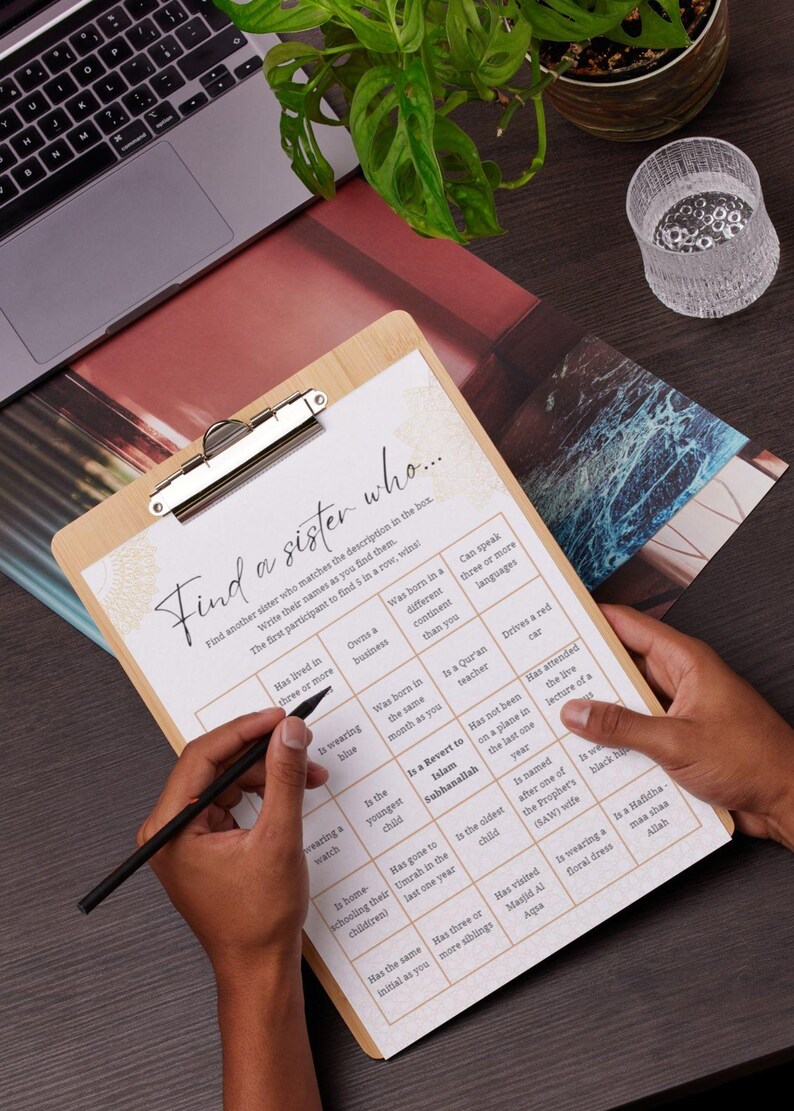 Find a sister who...
Find another sister who matches the description in the box.
Write their names as you find them.
The first participant to find 5 in a row, wins!
Has lived in
three or more
Owns a
business
Was born in a
different
continent
than you
Can speak
three or more
languages
Is wearing
blue
Was born in
the same
month as you
Is a Qur'an
teacher
Drives a red
car
wearing a
watch
Is the
youngest
child
Is a Revert to
Islam
Subhanallah
Has not been
on a plane in
the last one
year
Has attended
the live
lecture of a
Is home-
schooling their
child(ren)
Has gone to
Umrah in the
last one year
Is the oldest
child
Is named
after one of
the Prophet's
(SAW) wife
Is
black
Has the same
initial as you
Has three or
more siblings
Has visited
Masjid Al
Aqsa
Is wearing a
floral dress
Is a Hafidha -
maa shaa
Allah
command
option